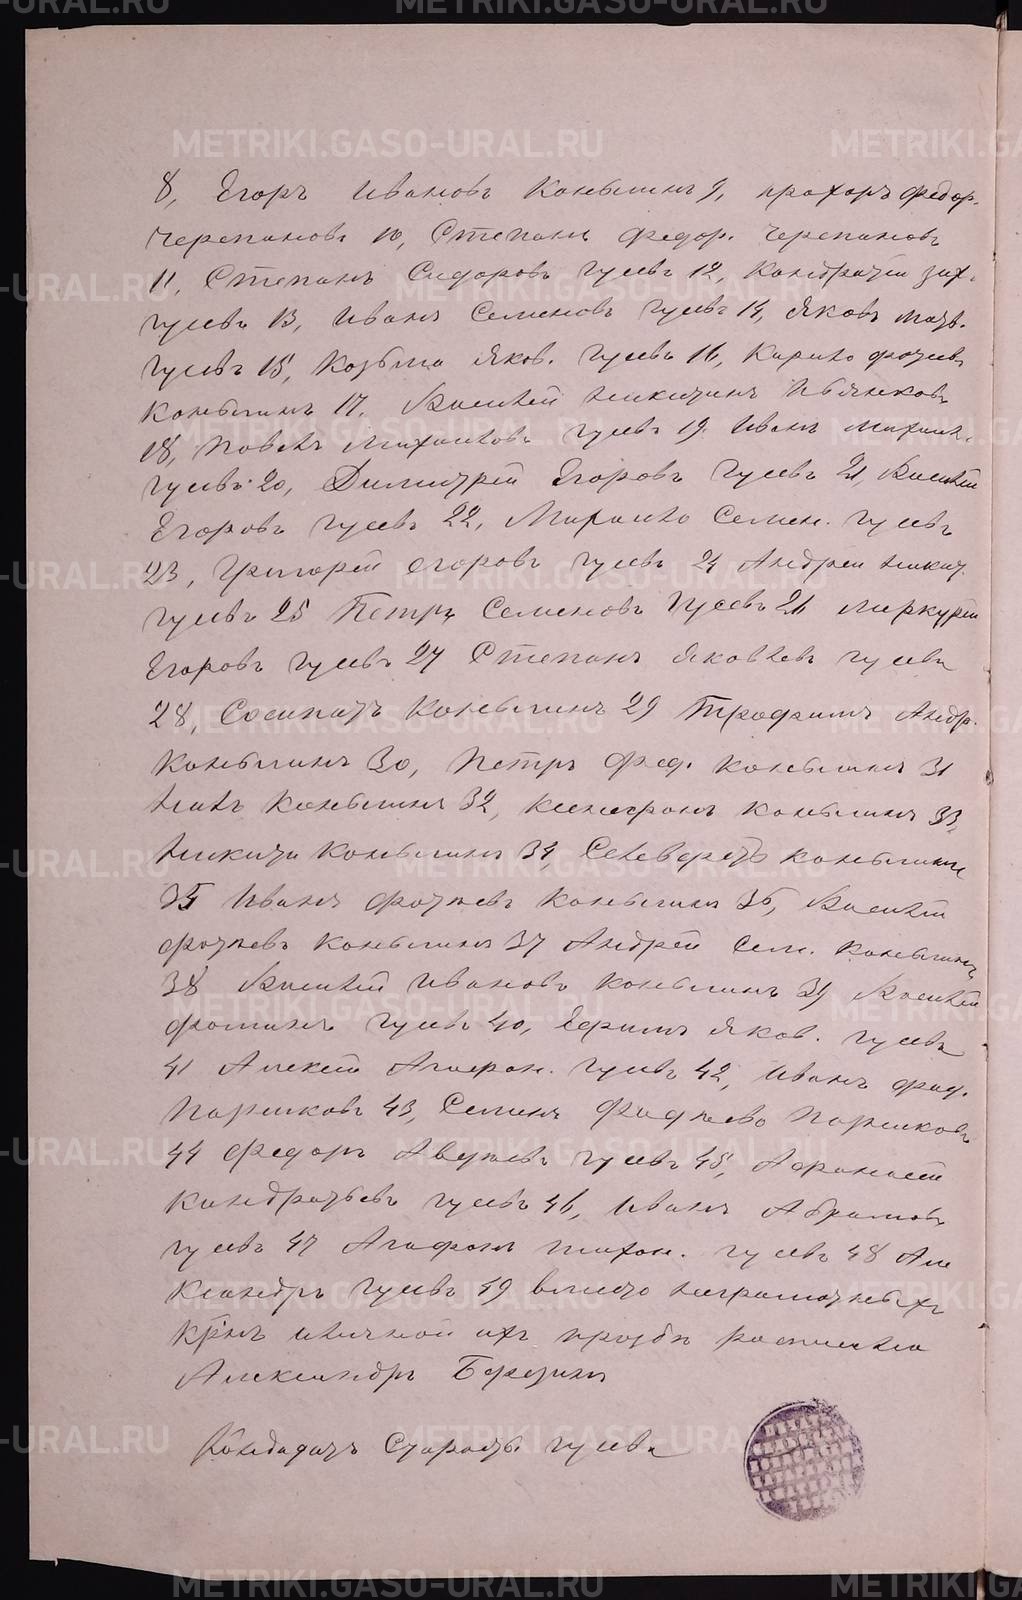 8, Егоръ Ивановъ Коневшинъ 9, Прохоръ Федор.
Черепановъ 10, Степанъ Федор. Черепановъ
11, Степанъ Сидоровъ Гусевъ 12, Кондратий Зах.
Гусевъ 13, Иванъ Семеновъ Гусевъ 14, Яковъ
Гусевъ 15, Козьма Яков. Гусевъ 16, Кирило Фотиев
17. Василий Никитинъ
18, Павелъ Михайловъ Гусевъ 19. Иванъ Михаил.
Гусевъ 20, Димитрий Егоровъ Гусевъ 21, Василий
Егоровъ Гусевъ 22, Семен. Гусевъ
23, Григорей Егоровъ Гусевъ 24 Андрей Никит.
Гусевъ 25 Петръ Семеновъ Гусевъ 26 Меркурей
Егоровъ Гусевъ 27 Степанъ Яковлевъ Гусевъ
28, Сосипатъ Коневшинъ 29 Трофимъ Андр.
Коневшинъ 30, Петръ Фед. Коневшинъ 31
Коневшинъ 32, Коневшинъ 33,
Никита Коневшинъ 34, Селеверстъ Коневшинъ
35 Иванъ Фотиевъ Коневшинъ 36, Василий
Фотиевъ Коневшинъ 37 Андрей Сем. Коневшинъ
38 Василий Ивановъ Коневшинъ 39 Василий
Фоминъ Гусевъ 40, Ефимъ Яков. Гусевъ
41 Алексей Агафон. Гусевъ 42, Иванъ Фад.
Паршковъ 43, Семенъ Фадеево Паршковъ
44 Федоръ Авдеевъ Гусевъ 45, Афонасей
Кондратьевъ Гусевъ 46, Иванъ Абрамовъ
Гусевъ 47 Агафонъ Тихон. Гусевъ 48 Але
ксандръ Гусевъ 49 вместо неграмотныхъ
Кр‑нъ и личной ихъ прозбе росписался
Александръ Березинъ
Кондидатъ Старосты Гусевъ
METRIKI.GASO-URAL.RU